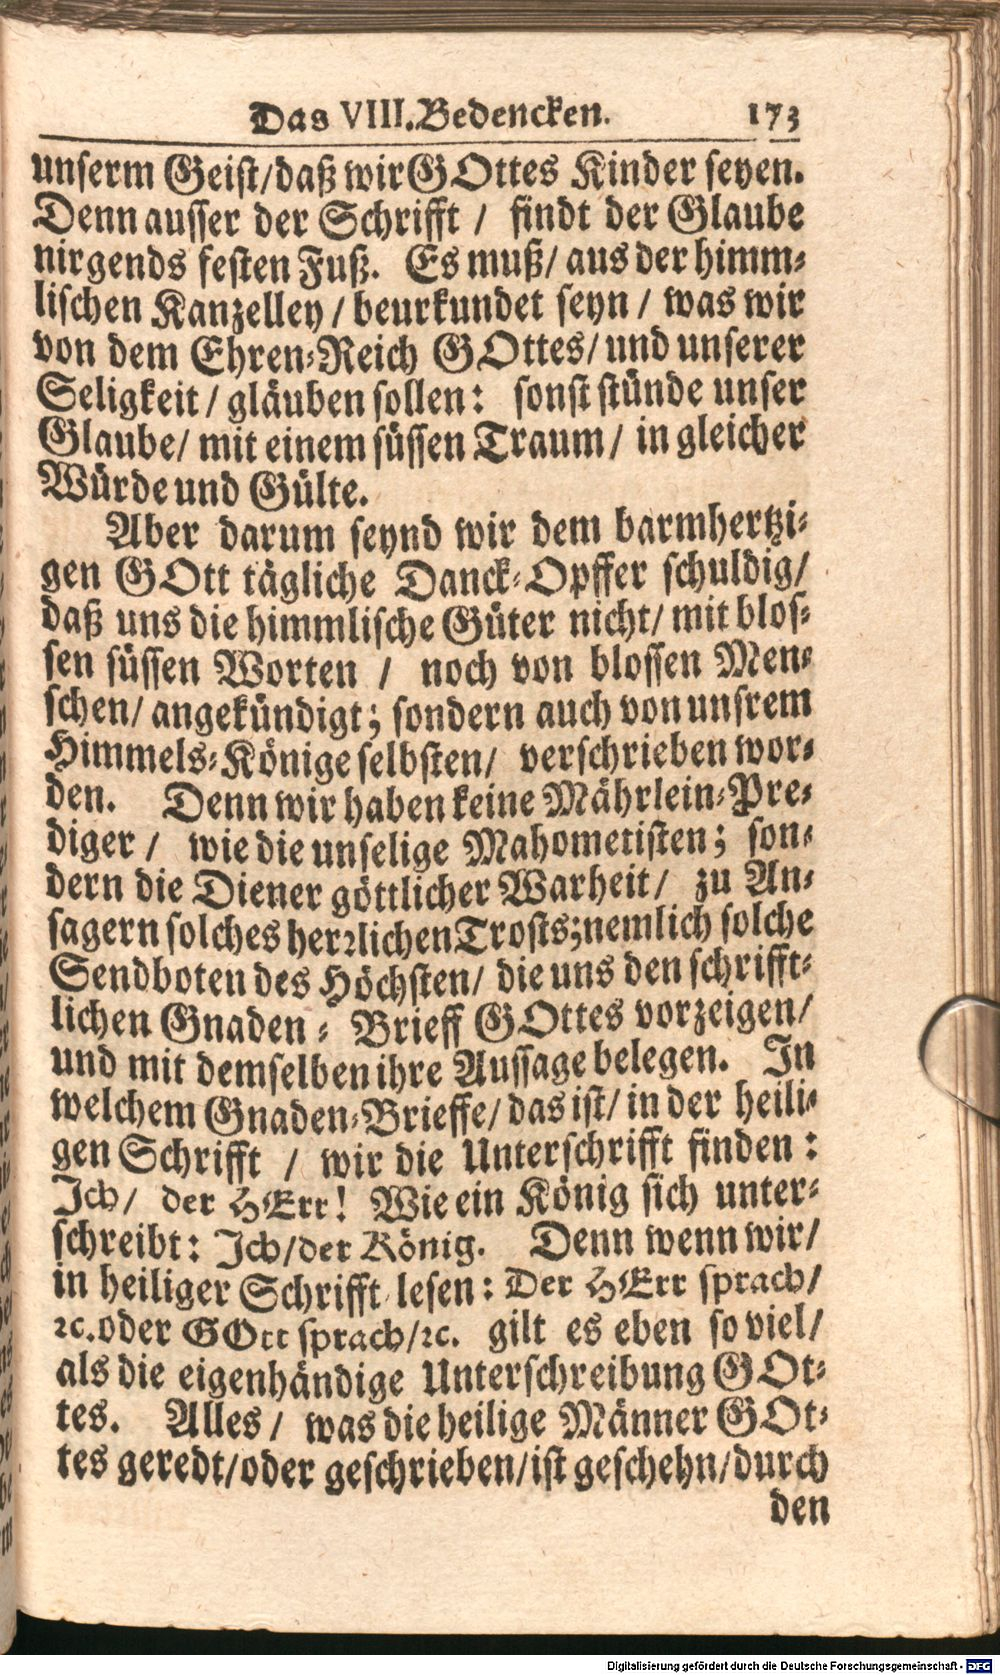 Das VIII. Bedencken. 173
unserm Geist/daß wir GOttes Kinder seyen.
Denn ausser der Schrifft / findt der Glaube
nirgends festen Fuß. Es muß/ aus der himm-
lischen Kanzelley / beurkundet seyn / was wir
von dem Ehren-Reich GOttes/ und unserer
Seligkeit / gläuben sollen: sonst stünde unser
Glaube/ mit einem süssen Traum/ in gleicher
Würde und Gülte.
Aber darum seynd wir dem barmhertzi-
gen GOtt tägliche Danck-Opffer schuldig/
daß uns die himmlische Güter nicht/ mit blos-
sen süssen Worten / noch von blossen Men-
schen/ angekündigt; sondern auch von unsrem
Himmels-Könige selbsten/ verschrieben wor-
den. Denn wir haben keine Mährlein-Pre-
diger / wie die unselige Mahometisten; son-
dern die Diener göttlicher Warheit/ zu An-
sagern solches herꝛlichen Trosts; nemlich solche
Sendboten des Höchsten/ die uns den schrifft-
lichen Gnaden-Brieff GOttes vorzeigen/
und mit demselben ihre Aussage belegen. In
welchem Gnaden-Brieffe/ das ist/ in der heili-
gen Schrifft / wir die Unterschrifft finden:
Ich/ der HErr! Wie ein König sich unter-
schreibt: Ich/der König. Denn wenn wir/
in heiliger Schrifft lesen: Der HErr sprach/
ꝛc. oder GOtt sprach/ꝛc. gilt es eben so viel/
als die eigenhändige Unterschreibung GOt-
tes. Alles/ was die heilige Männer GOt-
tes geredt/oder geschrieben/ist geschehn/durch
den
Digitalisierung gefördert durch die Deutsche Forschungsgemeinschaft - DFG